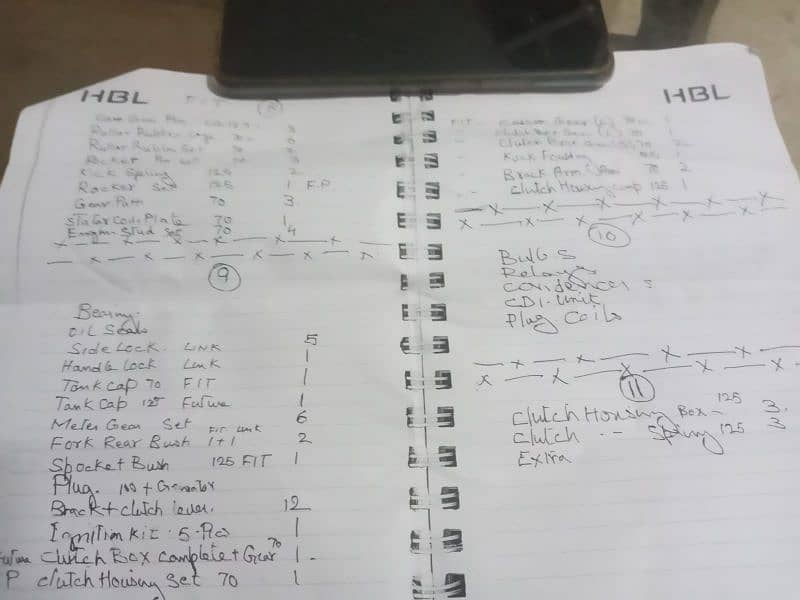 HBL
Roller Rubber
Roller Rubin Set
Rocket Pin Set
Kick Spring 125 2
Rocker Set 125 1 F.P
Gear Patti 70 3
Stator Coil Plate 70 1
Engin Stud Set 70 4
9
Bearing.
Oil Seals
Side Lock. Link 5
Handle Lock Link 1
Tank Cap 70 FIT 1
Tank Cap 125 Future 1
Meter Gear Set FIT Link 6
Fork Rear Bush 1+1 2
Spocket Bush 125 FIT 1
Plug. 100 + Genrator
Brack + clutch lever. 12
Ignition Kit. 5-Pcs 1
Future Clutch Box complete + Gear 70 1 -
P Clutch Housing Set 70 1
HBL
FIT -
Kick
Brack Arm 70 2
Clutch Housing Comp 125 1
10
Bulbs
Relays
Condencers
CDI-Unit
Plug Coils
11
Clutch Housing Box - 125 3.
Clutch -- Spring 125 3
Extra